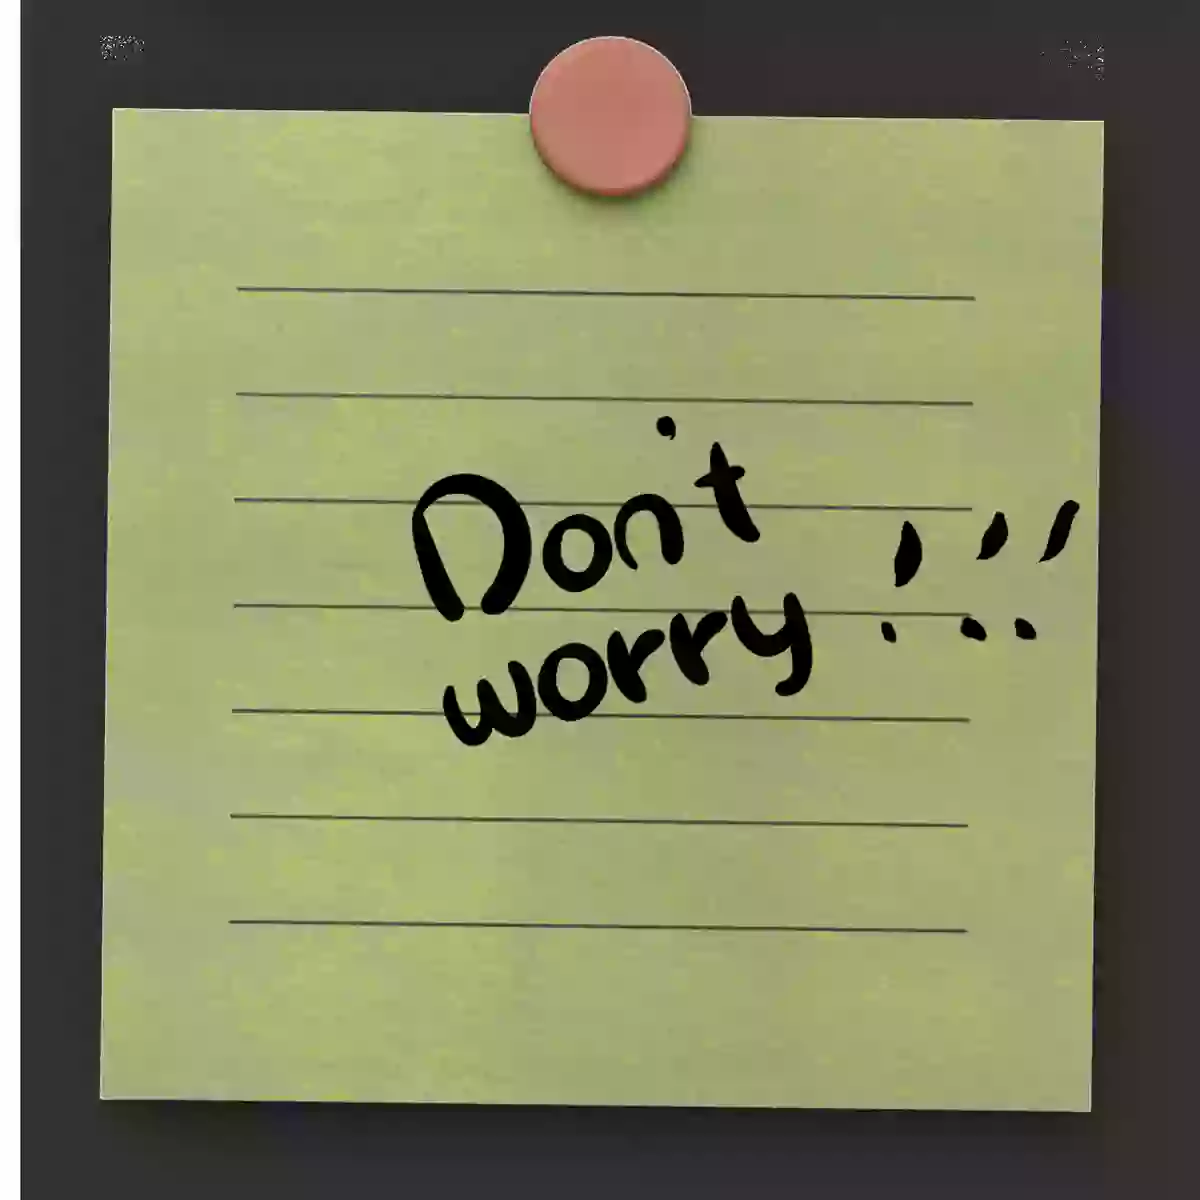 Don't
worry !!!